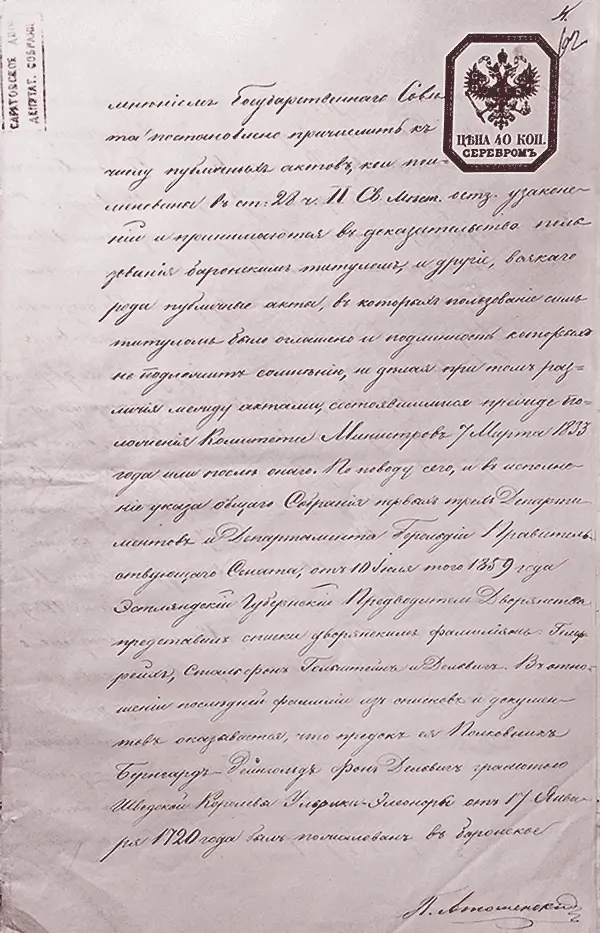 САРАТОВСКОЕ ДВОР
ДЕПУТАТ. СОБРАНІ
ЦѢНА 40 КОП.
СЕРЕБРОМЪ
мнѣніемъ Государственнаго Совѣ-
та постановлено причислить къ
числу публичныхъ актовъ, кои пои-
менованы въ ст: 28 ч. II Св. Мѣст. остз. узаконе-
ній и принимаются въ доказательство поль-
зованія баронскимъ титуломъ, и другіе, всякаго
рода публичные акты, въ которыхъ пользованіе симъ
титуломъ было оглашено и подлинность которыхъ
не подлежитъ сомнѣнію, не дѣлая при томъ раз-
личія между актами, состоявшимися прежде По-
ложенія Комитета Министровъ 7 Марта 1833
года или послѣ онаго. По поводу сего, и въ исполне-
ніе указа общаго Собранія первыхъ трехъ Департа-
ментовъ и Департамента Герольдіи Правитель-
ствующаго Сената, отъ 10 Іюля того 1859 года
Эстляндскій Губернскій Предводитель Дворянства
представилъ списки дворянскимъ фамиліямъ:
Сталь фонъ Гольштейнъ и Деловигъ. Въ отно-
шеніи послѣдней фамиліи изъ списковъ и докумен-
товъ оказывается, что предокъ ея Полковникъ
Бернгардъ-Рейнгольдъ фонъ Деловигъ грамотою
Шведской Королевы Ульрики-Элеоноры отъ 17 Янва-
ря 1720 года былъ пожалованъ въ баронское